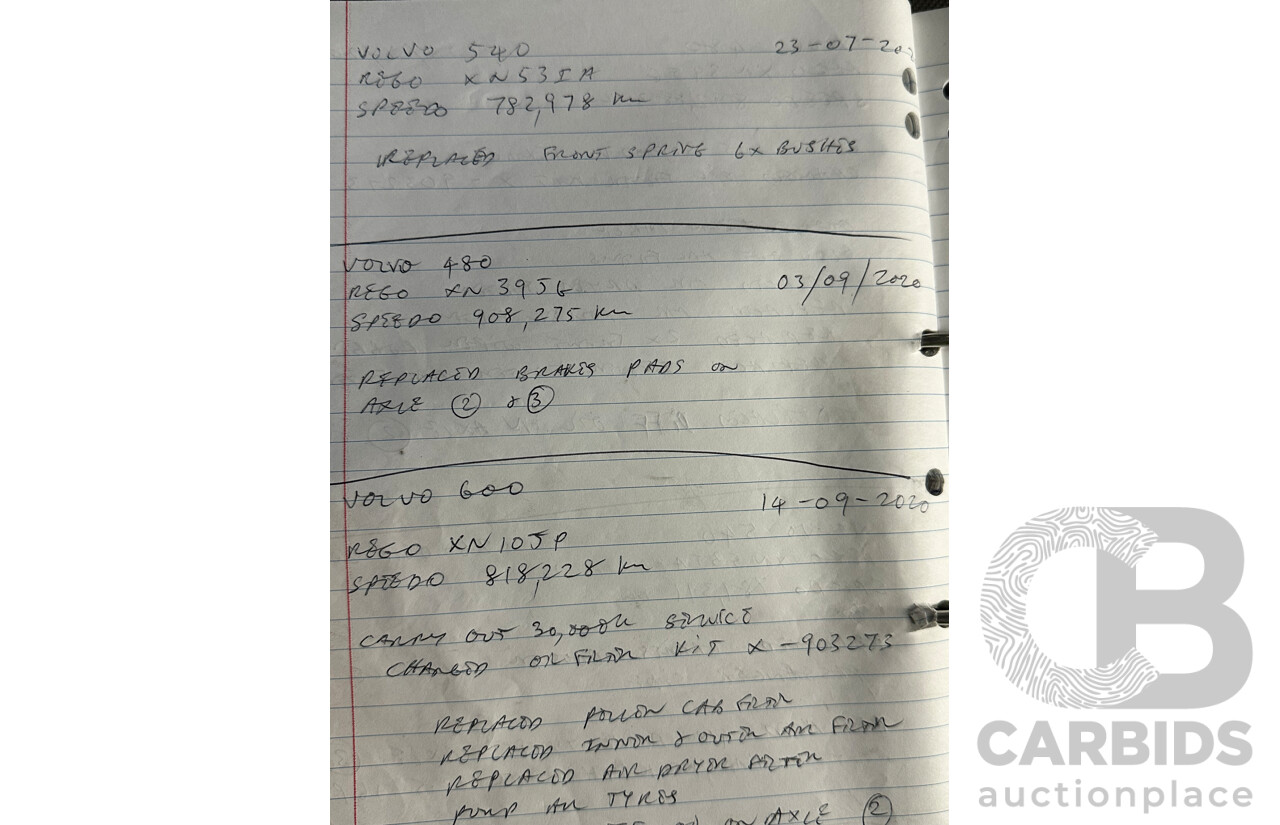 VOLVO 540 23-07-202
REGO XN53IA
SPEEDO 782,978 km
REPLACED FRONT SPRING 6x BUSHES
VOLVO 480
REGO XN39JG 03/09/2020
SPEEDO 908,275 km
REPLACED BRAKES PADS on
AXLE ② & ③
VOLVO 600 14-09-2020
REGO XN10JP
SPEEDO 818,228 km
CARRY OUT 30,000k SERVICE
CHANGED OIL FILTER KIT X-903273
REPLACED POLLEN CAB FILTER
REPLACED INNER & OUTER AIR FILTER
REPLACED AIR DRYER FILTER
PUMP ALL TYRES
on AXLE ②
CARBIDS
auctionplace